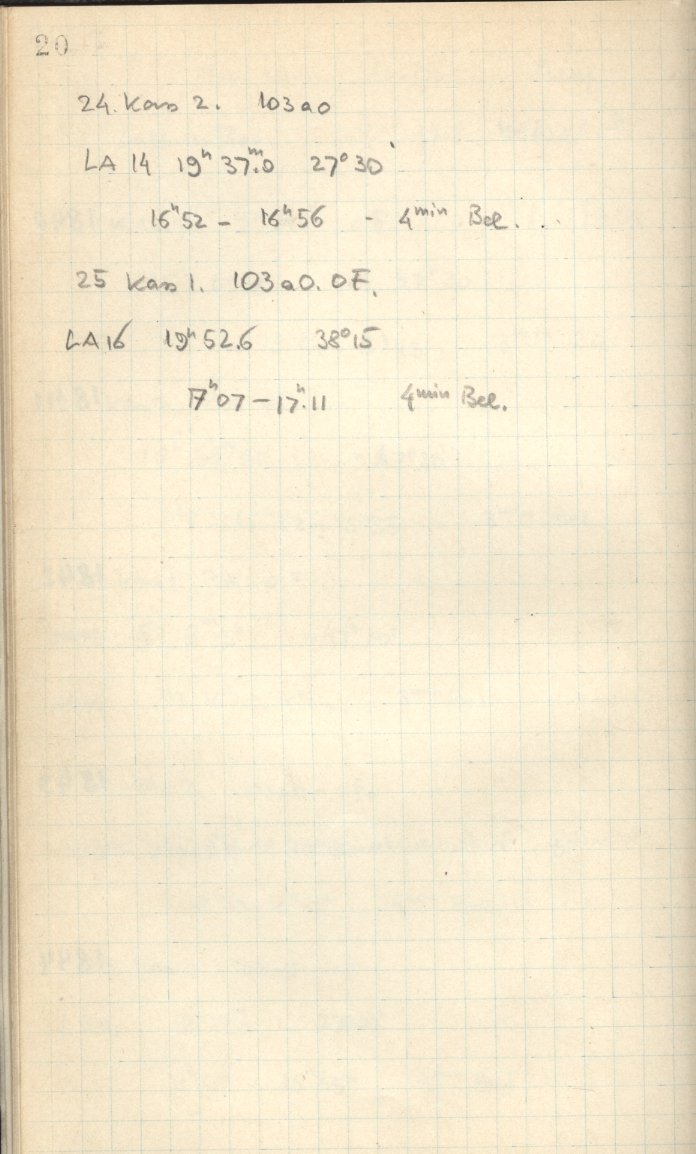 20
24. Kass 2. 103a0
LA 14 19ʰ 37ᵐ.0 27°30'
16ʰ52 – 16ʰ56 - 4ᵐⁱⁿ Bel. ..
25 Kass 1. 103a0. OF.
LA 16 19ʰ 52.6 38°15
17ʰ07 – 17ʰ.11 4ᵐⁱⁿ Bel.